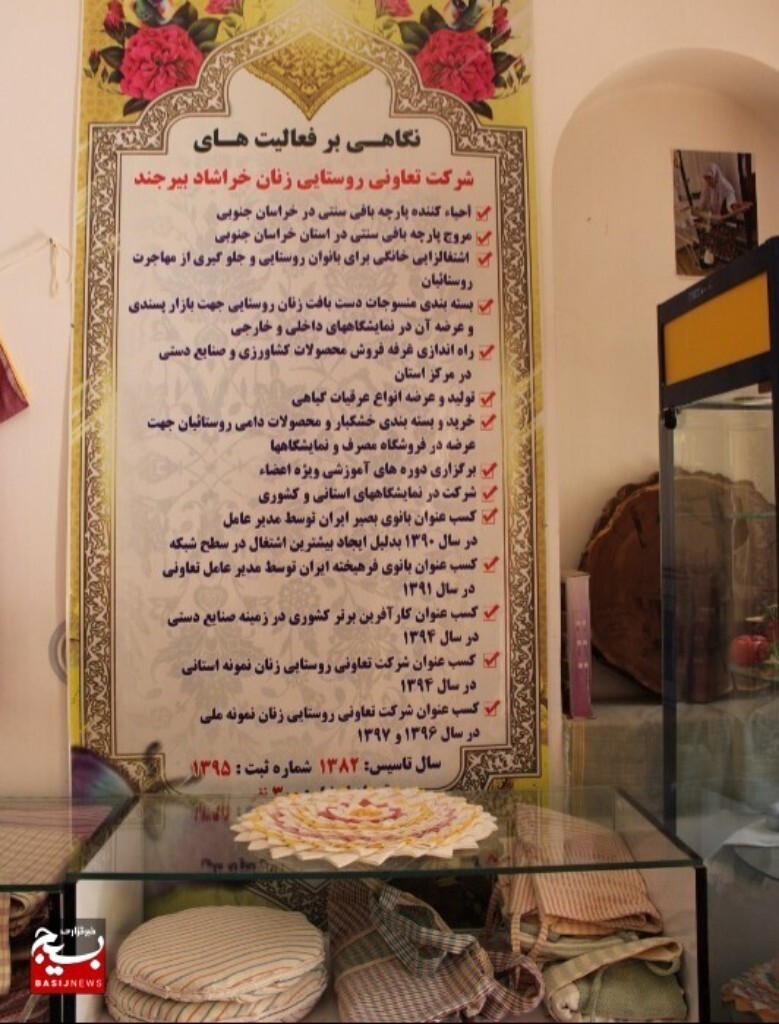 نگاهــی بر فعالیت هــای
شرکت تعاونی روستایی زنان خراشاد بیرجند
أحیاء کننده پارچه بافی سنتی در خراسان جنوبی
مروج پارچه بافی سنتی در استان خراسان جنوبی
اشتغالزایی خانگی برای بانوان روستایی و جلو گیری از مهاجرت
روستائیان
بسته بندی منسوجات دست بافت زنان روستایی جهت بازار پسندی
و عرضه آن در نمایشگاههای داخلی و خارجی
راه اندازی غرفه فروش محصولات کشاورزی و صنایع دستی
در مرکز استان
تولید و عرضه انواع عرقیات گیاهی
خرید و بسته بندی خشکبار و محصولات دامی روستائیان جهت
عرضه در فروشگاه مصرف و نمایشگاهها
برگزاری دوره های آموزشی ویژه اعضاء
شرکت در نمایشگاههای استانی و کشوری
کسب عنوان بانوی بصیر ایران توسط مدیر عامل
در سال ۱۳۹۰ بدلیل ایجاد بیشترین اشتغال در سطح شبکه
کسب عنوان بانوی فرهیخته ایران توسط مدیر عامل تعاونی
در سال ۱۳۹۱
کسب عنوان کارآفرین برتر کشوری در زمینه صنایع دستی
در سال ۱۳۹۴
کسب عنوان شرکت تعاونی روستایی زنان نمونه استانی
در سال ۱۳۹۴
کسب عنوان شرکت تعاونی روستایی زنان نمونه ملی
در سال ۱۳۹۶ و ۱۳۹۷
سال تاسیس: ۱۳۸۲ شماره ثبت : ۱۳۹۵
خبرگزاری
بسیج
BASIJNEWS